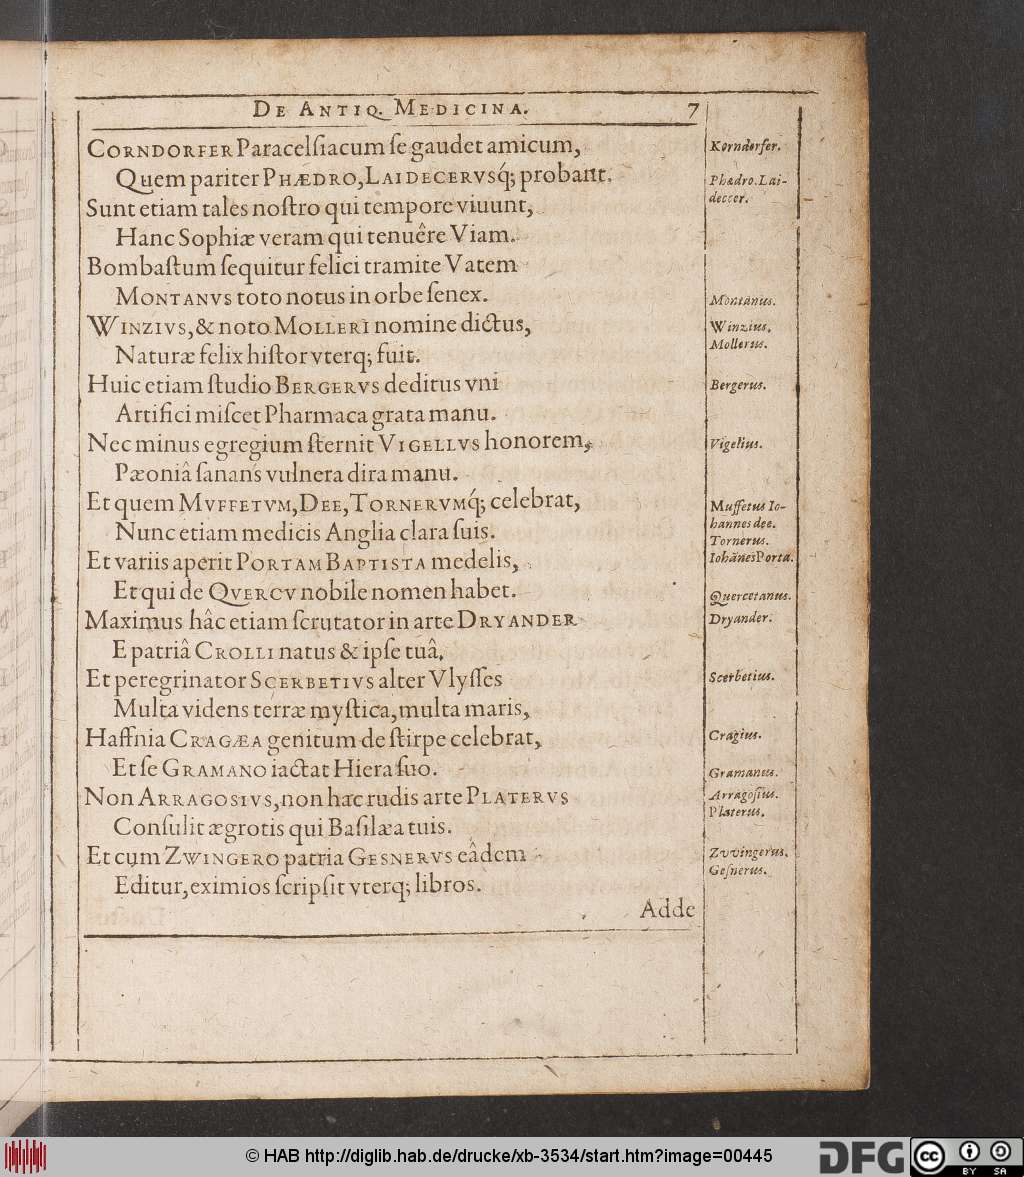 DE ANTIQ. MEDICINA. 7
CORNDORFER Paracelſiacum ſe gaudet amicum,
Quem pariter PHÆDRO, LAIDECERVSq́; probant.
Sunt etiam tales noſtro qui tempore viuunt,
Hanc Sophiæ veram qui tenuêre Viam.
Bombaſtum ſequitur felici tramite Vatem
MONTANVS toto notus in orbe ſenex.
WINZIVS, & noto MOLLERI nomine dictus,
Naturæ felix hiſtor vterq; fuit.
Huic etiam ſtudio BERGERVS deditus vni
Artifici miſcet Pharmaca grata manu.
Nec minus egregium ſternit VIGELLVS honorem,
Pæoniâ ſanans vulnera dira manu.
Et quem MVFFETVM, DEE, TORNERVMq́; celebrat,
Nunc etiam medicis Anglia clara ſuis.
Et variis aperit PORTAM BAPTISTA medelis,
Et qui de QVERCV nobile nomen habet.
Maximus hâc etiam ſcrutator in arte DRYANDER
E patriâ CROLLI natus & ipſe tuâ,
Et peregrinator SCERBETIVS alter Vlyſſes
Multa videns terræ myſtica, multa maris,
Haffnia CRAGÆA genitum de ſtirpe celebrat,
Et ſe GRAMANO iactat Hiera ſuo.
Non ARRAGOSIVS, non hac rudis arte PLATERVS
Conſulit ægrotis qui Baſilæa tuis.
Et cum ZWINGERO patria GESNERVS eâdem
Editur, eximios ſcripſit vterq; libros.
Adde
Korndorfer.
Phædro. Lai-
deccer.
Montanus.
Winzius.
Mollerus.
Bergerus.
Vigelius.
Muffetus Io-
hannes dee.
Tornerus.
Iohānes Porta.
Quercetanus.
Dryander.
Scerbetius.
Cragius.
Gramanus.
Arragoſius.
Platerus.
Zvvingerus.
Geſnerus.
© HAB http://diglib.hab.de/drucke/xb-3534/start.htm?image=00445
DFG
cc
BY SA